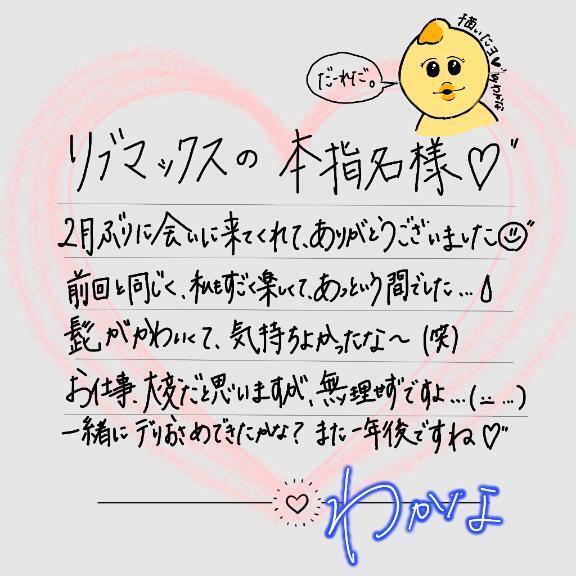 描いたヨ♥ byわかな
だーれだ。
リブマックスの 本指名様♡"
2月ぶりに会いに来てくれて、ありがとうございました☺"
前回と同じく、私もすごく楽しくて、あっという間でした…💧
髭がかわいくて、気持ちよかったな〜(笑)
お仕事、大変だと思いますが、無理せずですよ…(¨ …)
一緒に デリおさめできたかな? また一年後ですね♡"
わかな